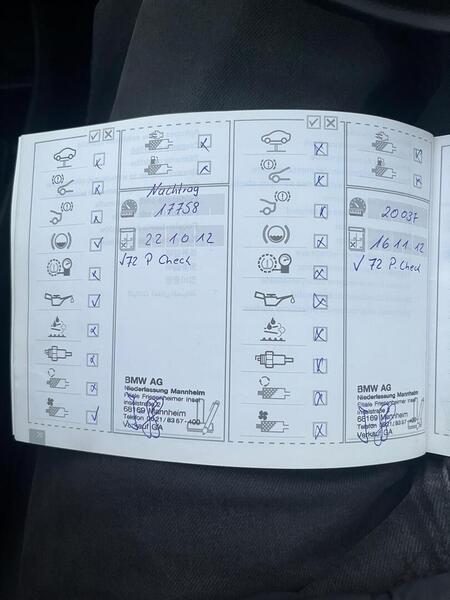 Nachtrag
17758
22 10 12
√ 72 P. Check
BMW AG
Niederlassung Mannheim
Filiale Friesenheimer Insel
Inselstraße
68169 Mannheim
Telefon 0621/8357-400
Verkauf GA
20037
16 11 12
√ 72 P. Check
BMW AG
Niederlassung Mannheim
Filiale Friesenheimer Insel
Inselstraße
68169 Mannheim
Telefon 0621/8357-400
Verkauf GA